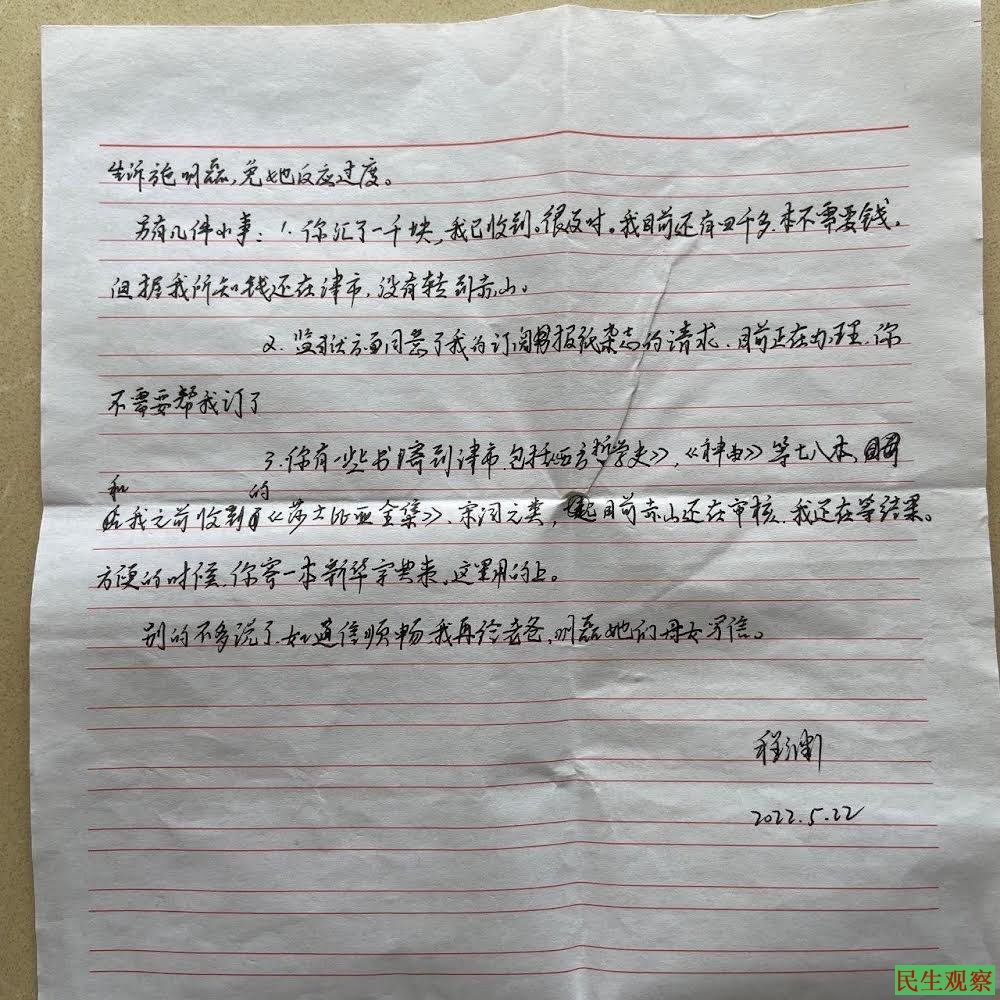 告诉施明磊,免她反应过度。
另有几件小事:1.你汇了一千块,我已收到。很及时。我目前还有四千多,本不需要钱。
但据我所知钱还在津市,没有转到赤山。
2.监狱方面同意了我的订阅报纸杂志的请求,目前正在办理,你
不需要帮我订了
3.你有一些书寄到津市包括西方哲学史》,《神曲》等七八本,
和 的
我之前收到《莎士比亚全集》,宋词元类,目前赤山还在审核,我还在等结果。
方便的时候,你寄一本新华字典来,这里用的上。
别的不多说了,如通信顺畅我再给老爸,明磊她们母女写信。
程渊
2022.5.22
民生观察